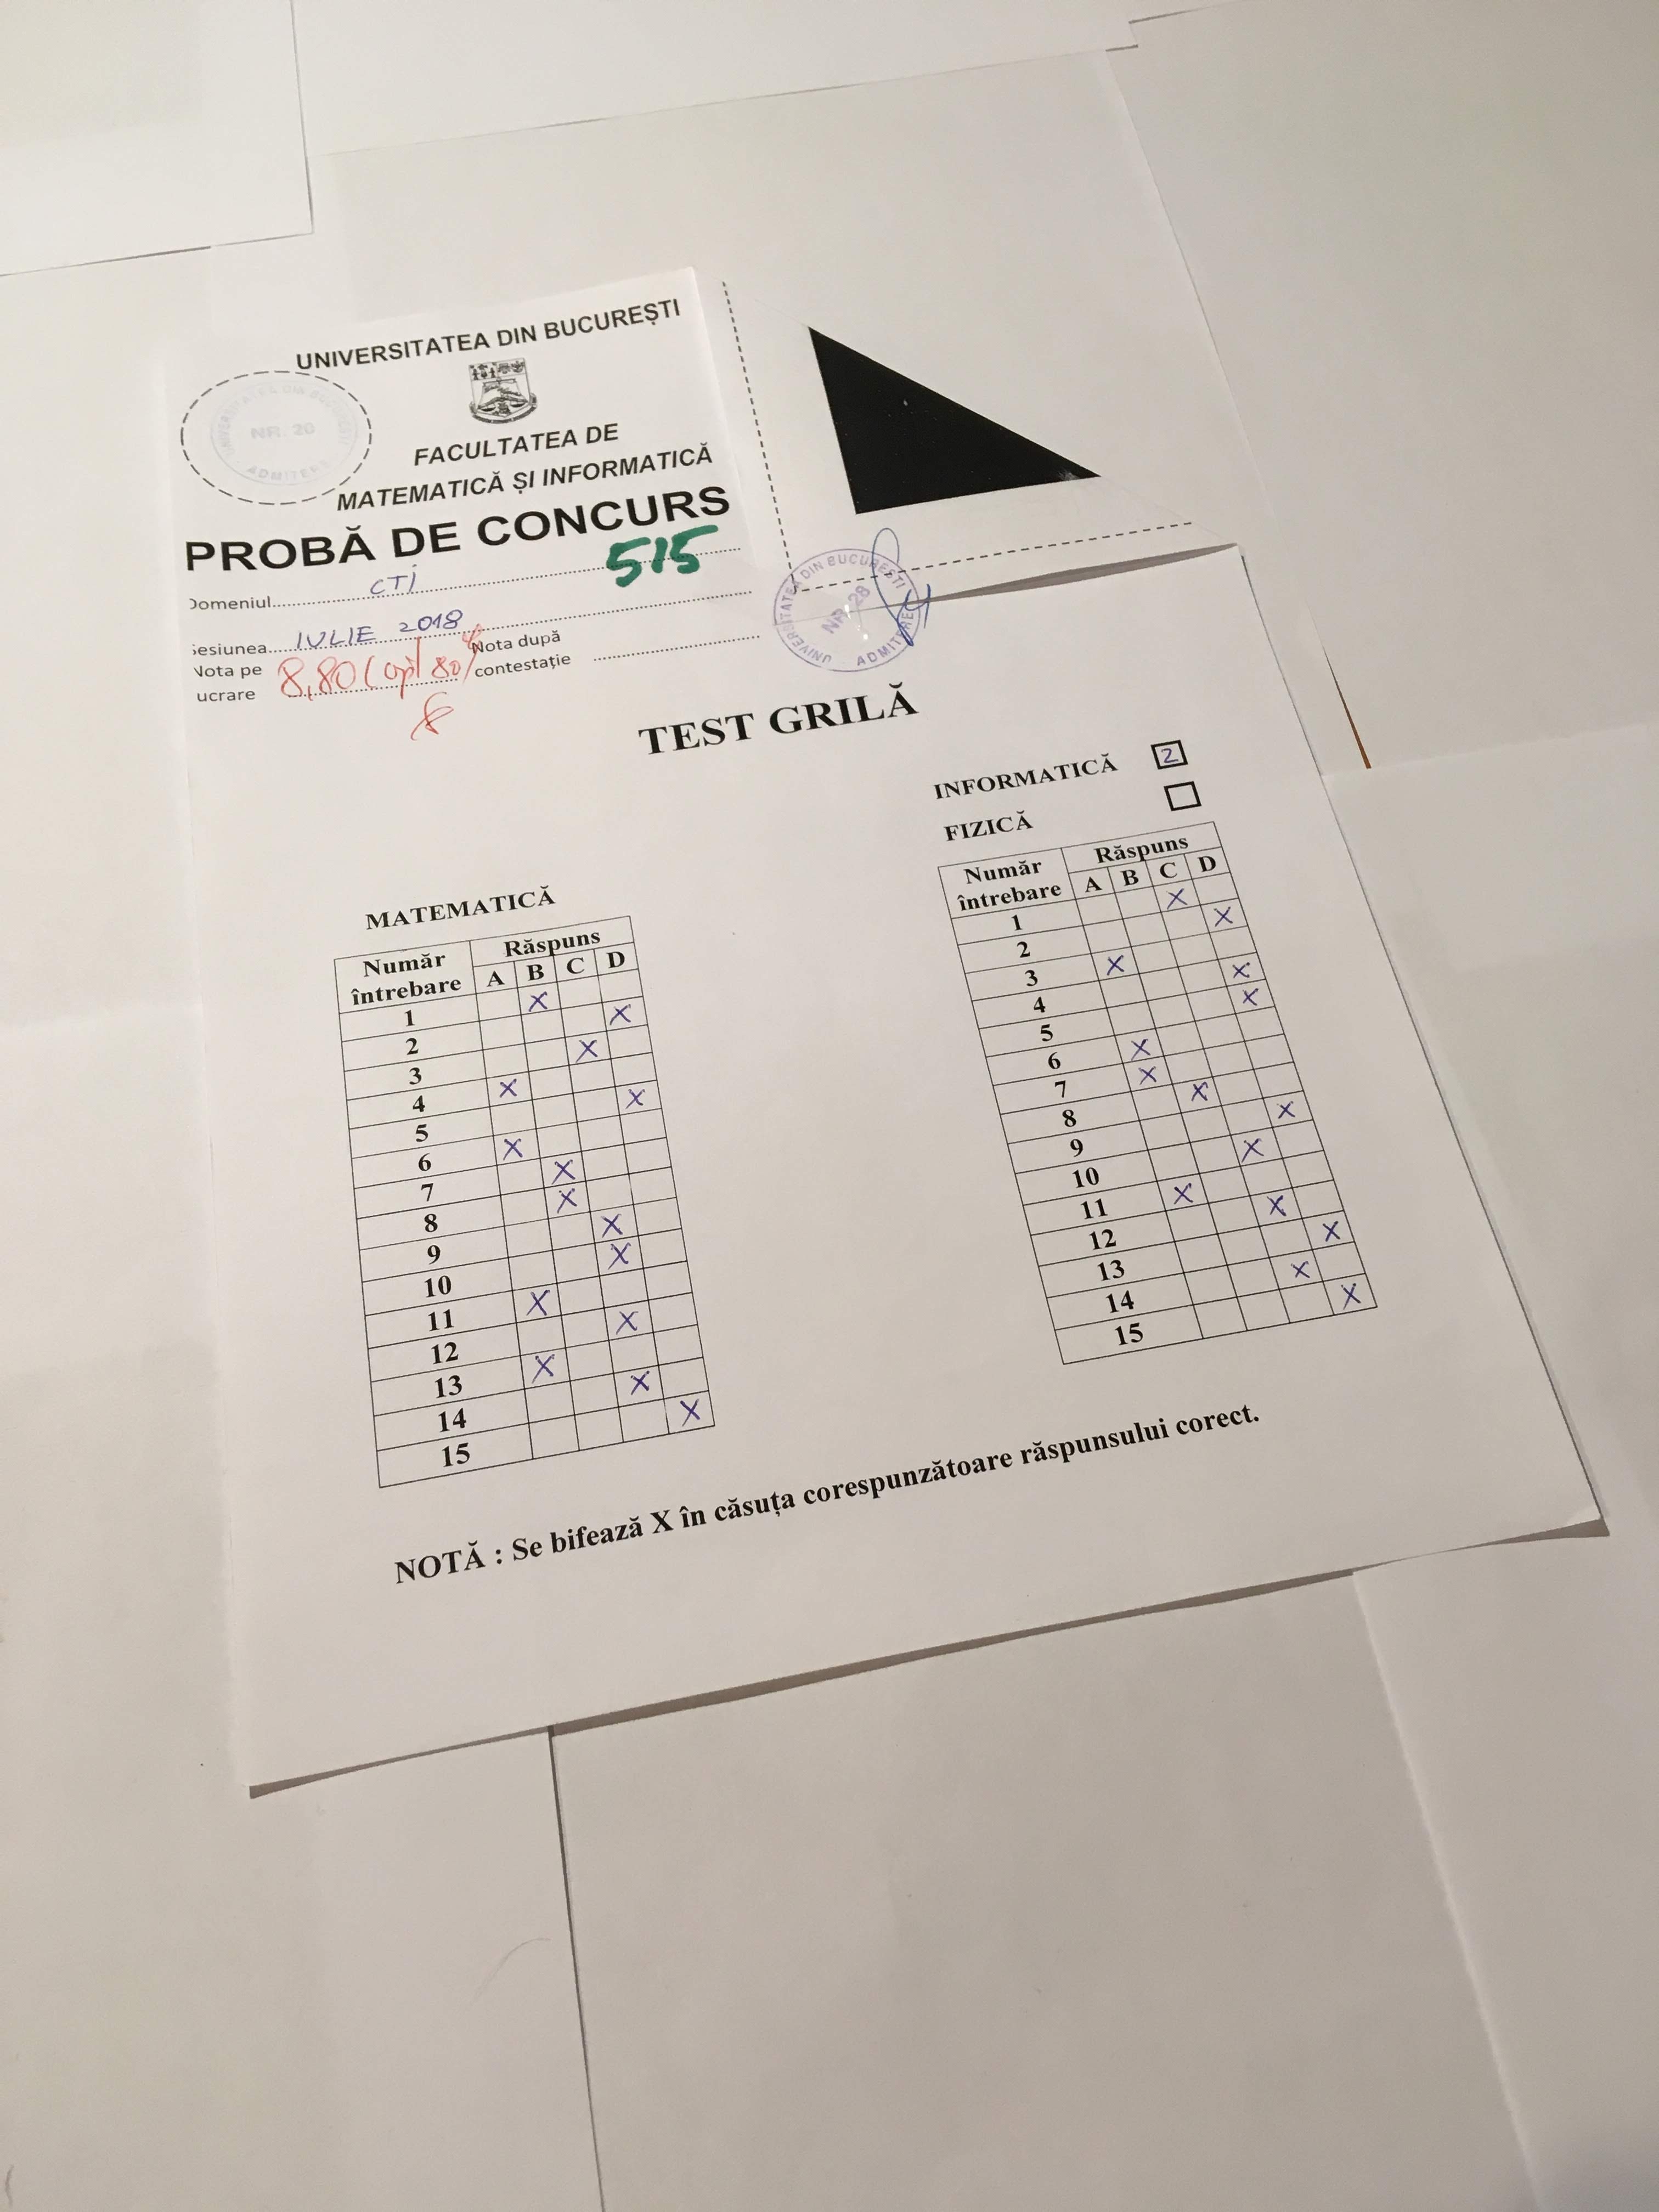 UNIVERSITATEA DIN BUCUREȘTI
UNIVERSITATEA DIN BUCUREȘTI
NR. 28
ADMITERE
FACULTATEA DE
MATEMATICĂ ȘI INFORMATICĂ
PROBĂ DE CONCURS
515
Domeniul CTI
Sesiunea IULIE 2018
Nota pe
ucrare
8,80 (opt 80)
Nota după
contestație
UNIVERSITATEA DIN BUCUREȘTI
NR. 28
ADMITERE
TEST GRILĂ
INFORMATICĂ 2
FIZICĂ
MATEMATICĂ
Număr
întrebare
Răspuns
A B C D
1 X
2 X
3 X
4 X
5 X
6 X
7 X
8 X
9 X
10 X
11 X
12 X
13 X
14 X
15 X
Număr
întrebare
Răspuns
A B C D
1 X
2 X
3 X
4 X
5 X
6 X
7 X
8 X
9 X
10 X
11 X
12 X
13 X
14 X
15 X
NOTĂ : Se bifează X în căsuța corespunzătoare răspunsului corect.